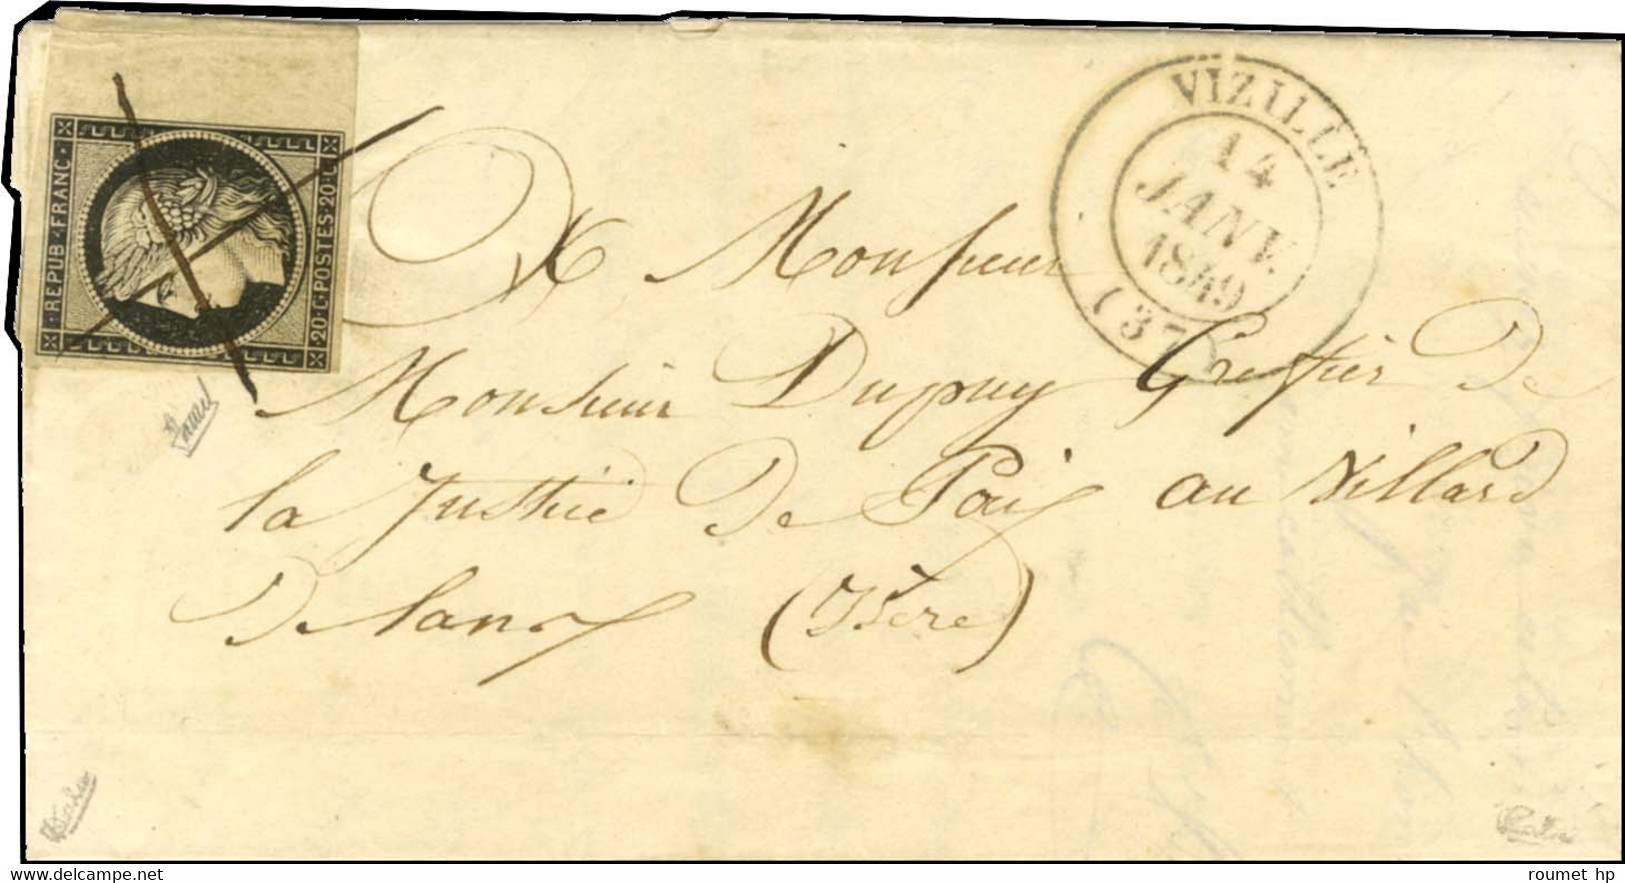 REPUB·FRANC·
20·C·POSTES·20·C
VIZILLE
14
JANV.
1849
(37)
A Monsieur
Monsieur Dupuy Greffier de
la Justice de Paix au Villard
De lans
(Isère)
www.delcampe.net
roumet hp